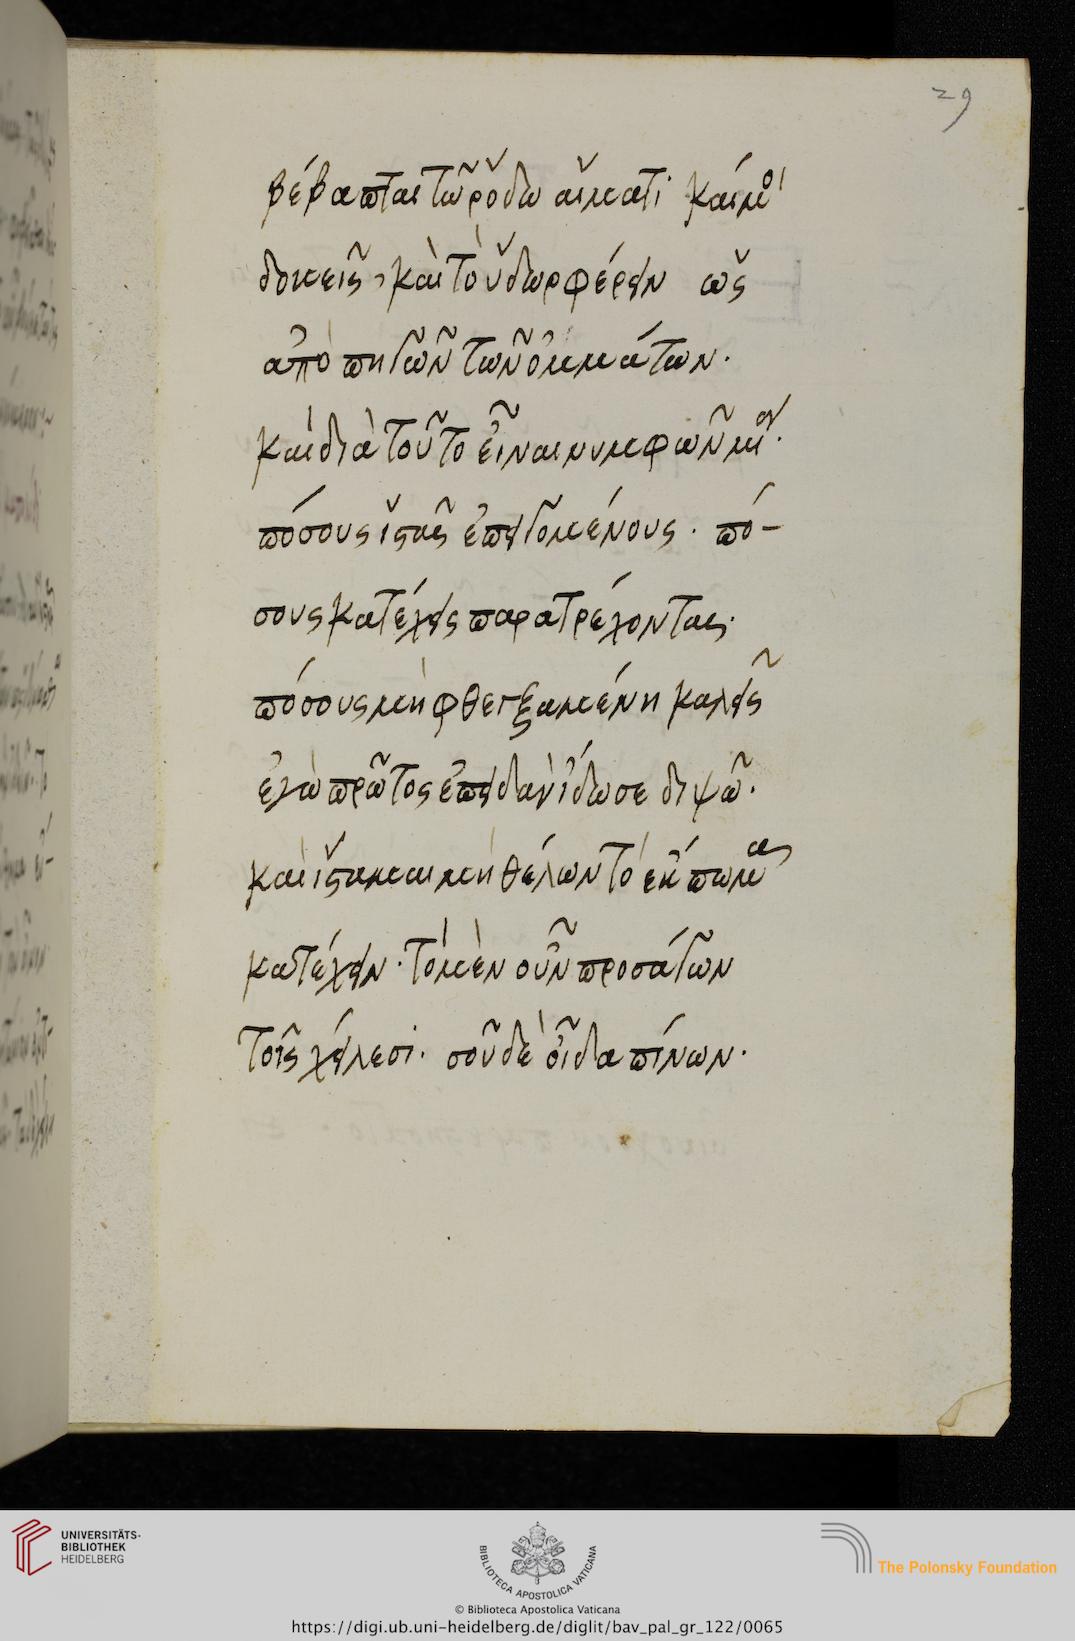 29
βέβαπται τῶ ῥόδω αἵματι καί μοι
δοκεῖς, καὶ τὸ ὕδωρ φέρειν ὡς
ἀπὸ πηγῶν τῶν ὀμμάτων.
καὶ διὰ τοῦτο εἶναι νυμφῶν μία.
πόσους ἱστᾶς ἐπειγομένους. πό-
σους κατέχεις παρατρέχοντας.
πόσους μὴ φθεγξαμένη καλεῖς
ἐγὼ πρῶτος ἐπειδὰν ἴδω σε διψῶ.
καὶ ἵσταμαι μὴ θέλων τὸ ἔκπωμα
κατέχειν. τὸ μὲν οὖν προσάγων
τοῖς χείλεσι. σοῦ δὲ οἶδα πίνων.
UNIVERSITÄTS-
BIBLIOTHEK
HEIDELBERG
BIBLIOTECA APOSTOLICA VATICANA
The Polonsky Foundation
© Biblioteca Apostolica Vaticana
https://digi.ub.uni-heidelberg.de/diglit/bav_pal_gr_122/0065